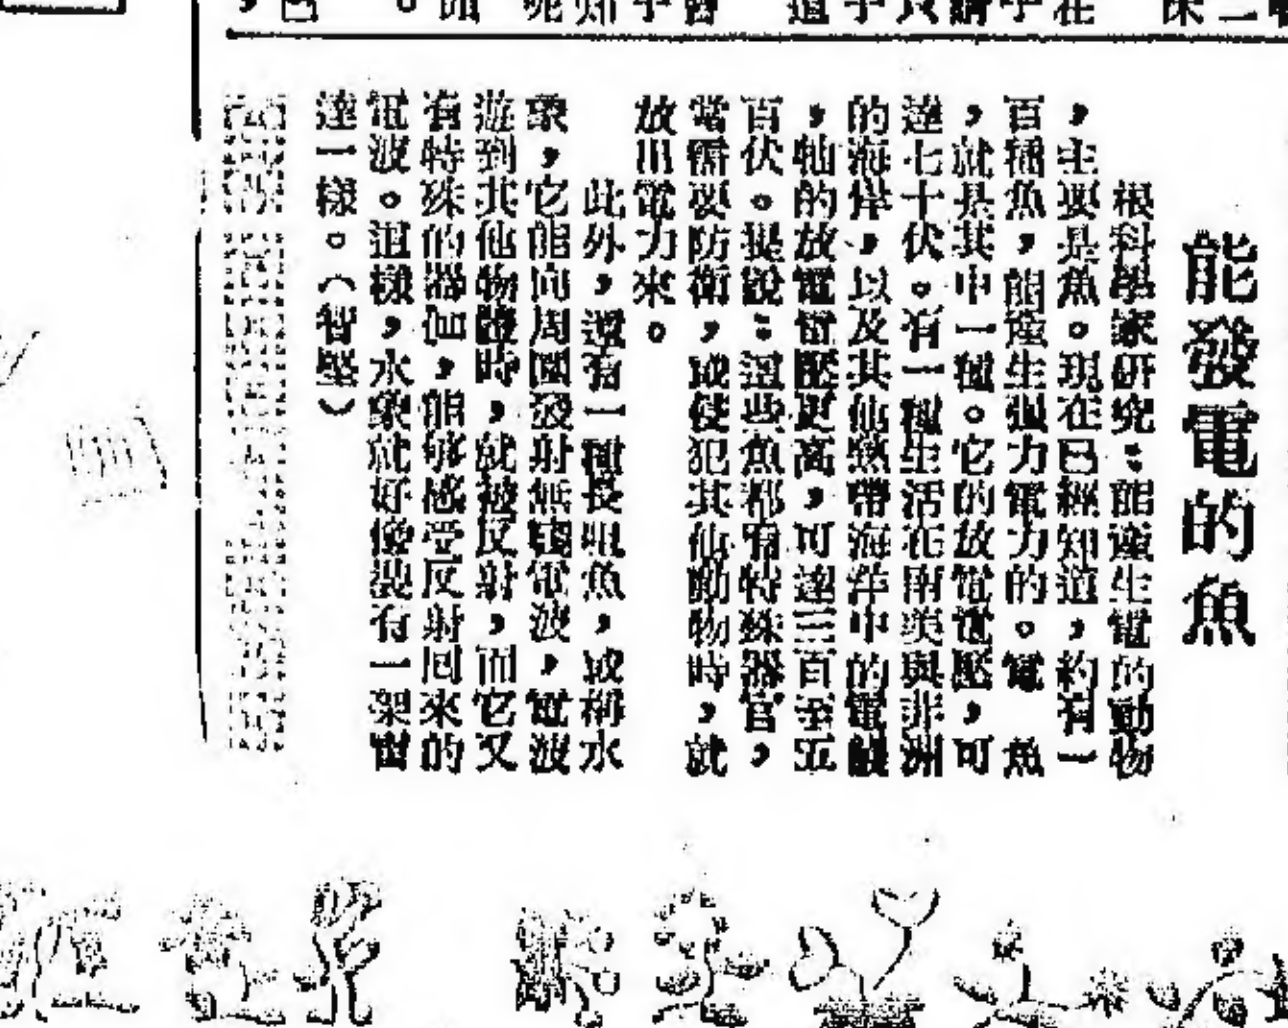 能發電的魚
根科學家研究：能產生電的動物
，主要是魚。現在已經知道，約有一
百種魚，能產生強力電力的。電　魚
，就是其中一種。它的放電電壓，可
達七十伏。有一種生活在南美與非洲
的海岸，以及其他熱帶海洋中的電鰻
，牠的放電電壓更高，可達三百至五
百伏。據說：這些魚都有特殊器官，
當需要防衛，或使犯其他動物時，就
放出電力來。
此外，還有一種長咀魚，或稱水
象，它能向周圍發射無線電波，電波
遊到其他物體時，就被反射，而它又
有特殊的器伽，能够感受反射囘來的
電波。這樣，水象就好像裝有一架雷
達一樣。（智堅）